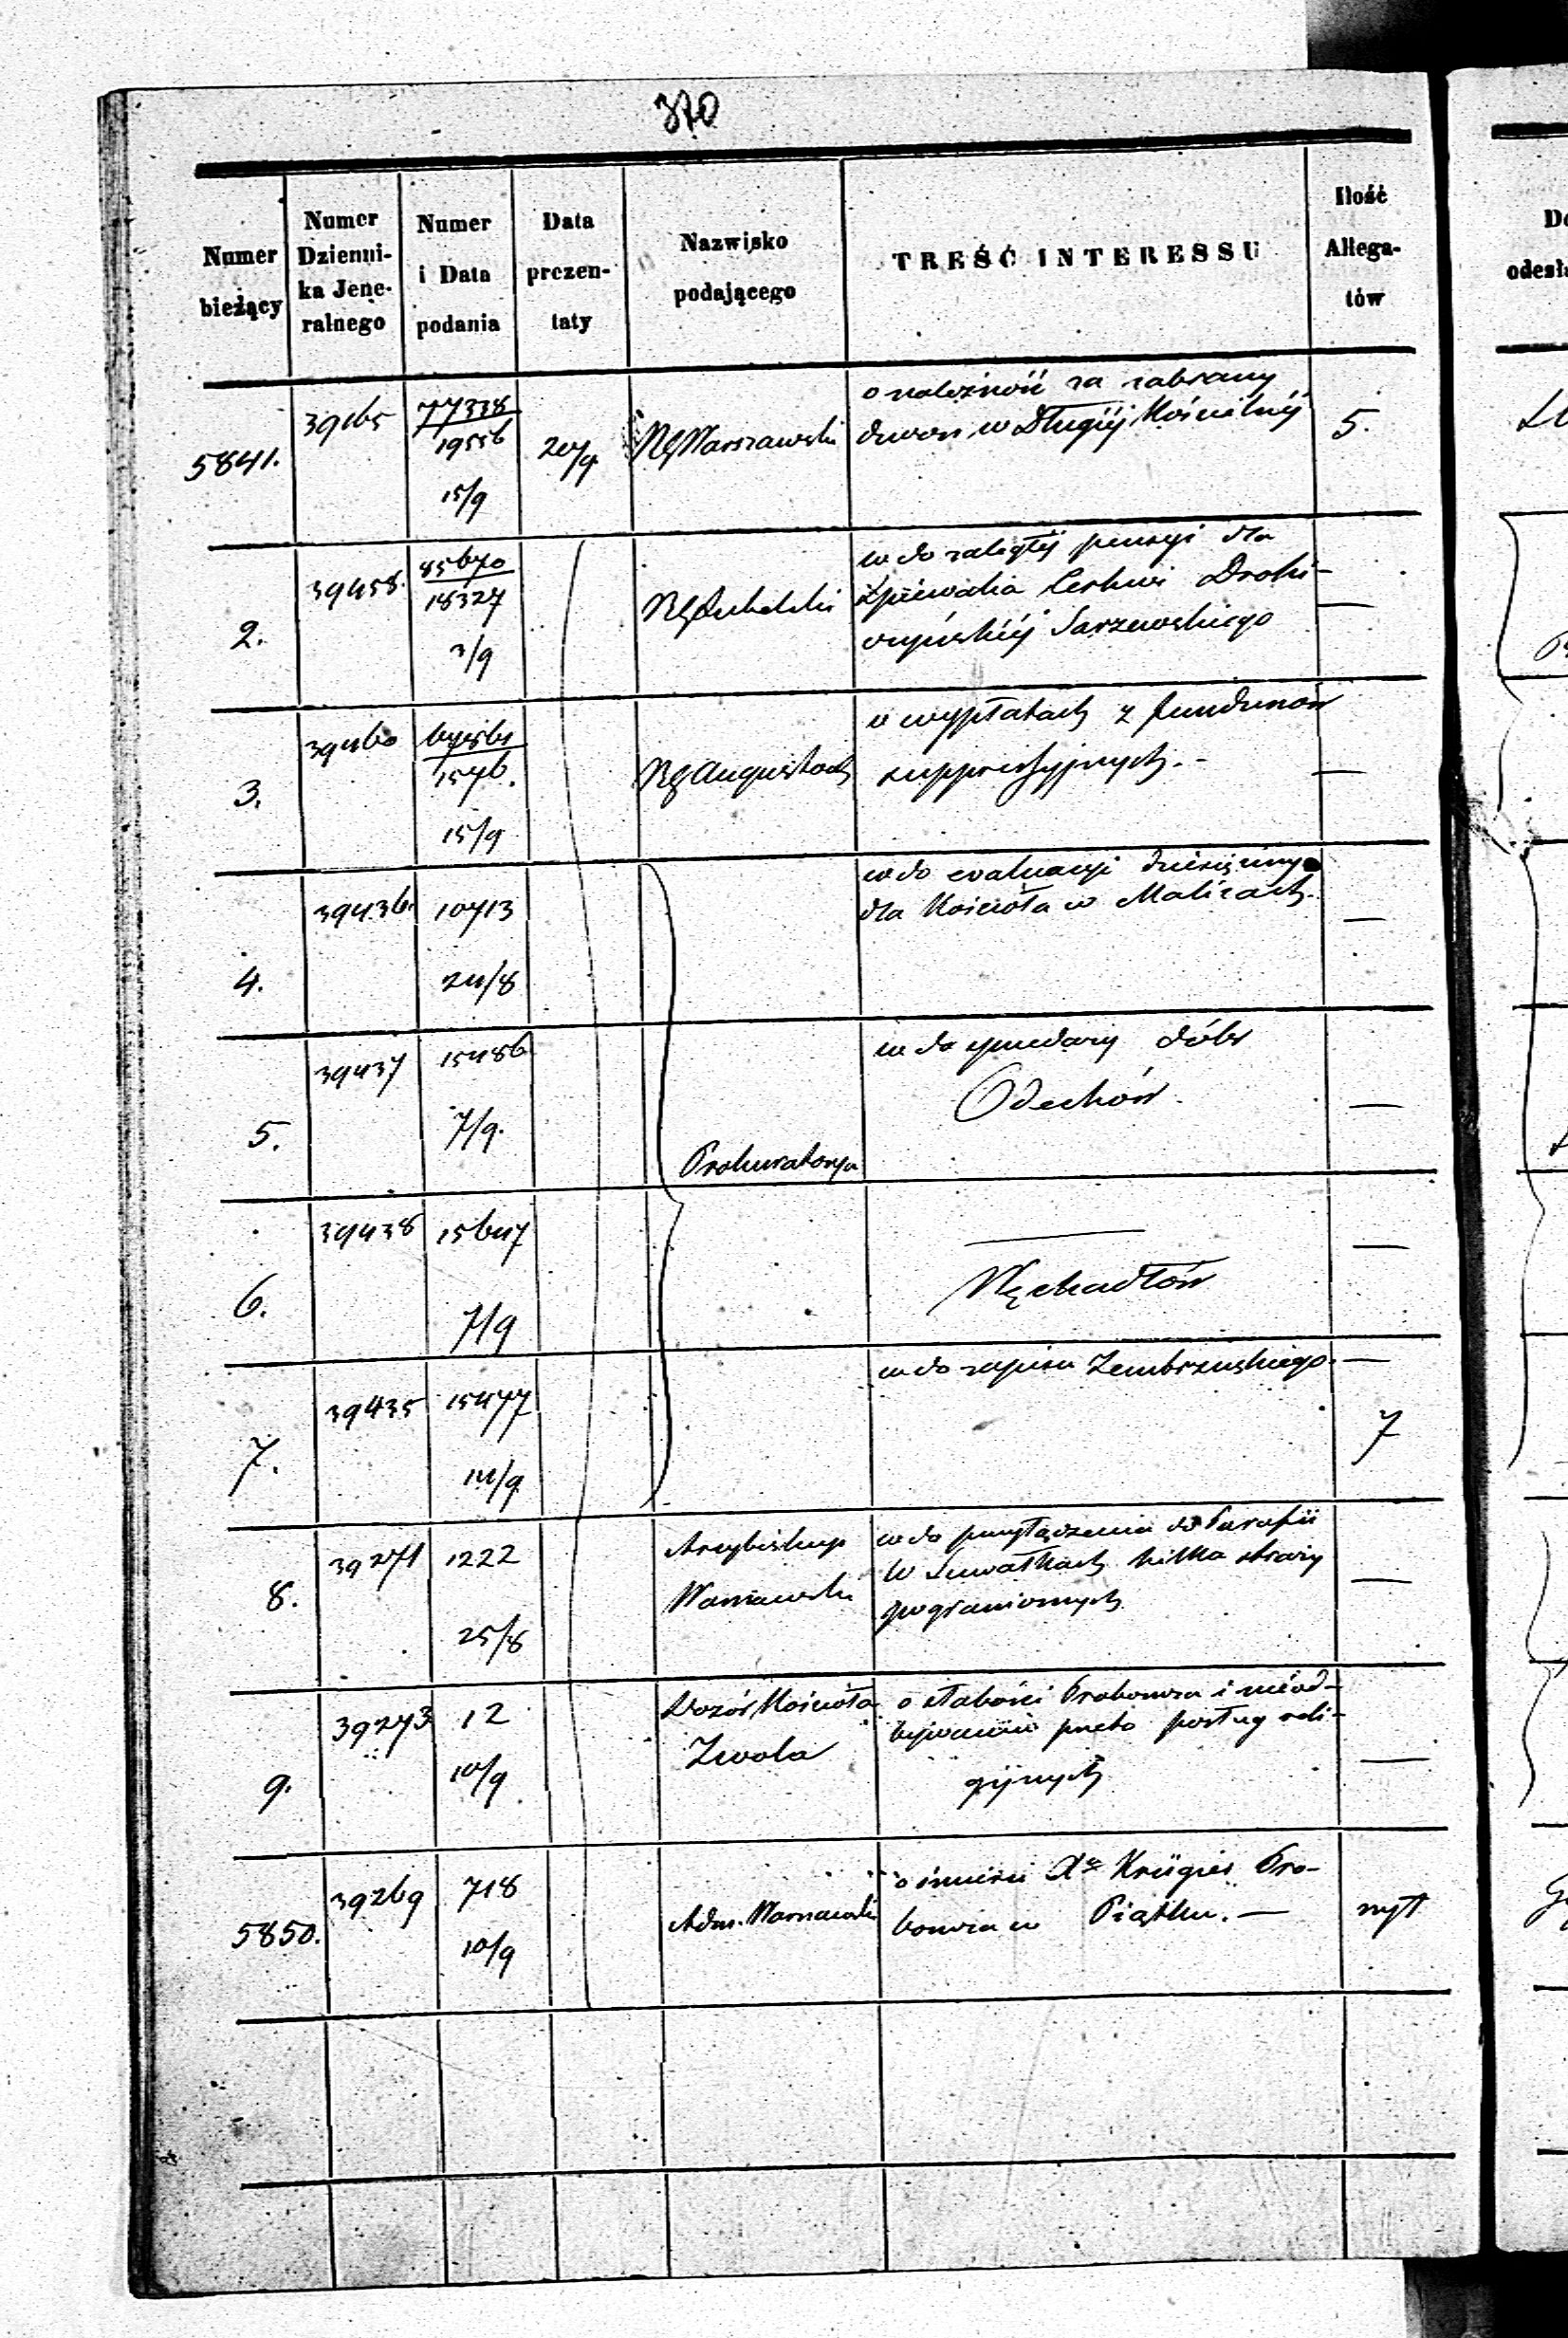 370
Numer bieżący
Numer Dzienni-ka Jene-ralnego
Numer i Data podania
Data prezen-taty
Nazwisko podającego
TREŚĆ INTERESSU
Ilość Allega-tów
5841.
39165
77338
19556
15/9
20/9
RG Warszawski
o należność za zabrany
drzewo w Długiéj Kościelnéj
5.
2.
39458.
85670
18327
3/9
RG Lubelski
w do zaległéj pensyi dla
Śpiewaka Cerkwi Drohi-
czyńskiéj Sarzewskiego
—
3.
39460
15/9
RG Augustow
o wypłatach z funduszów
suppressyjnych. -
—
4.
39436.
10713
24/8
w do ewaluacyi dziesięciny
dla Kościoła w Malicach.
—
5.
39437
15486
7/9.
Prokuratorya
w do sprzedaży dóbr
Odechów.
—
6.
39438
15647
7/9
—
Węchadłów
—
7.
39435
15477
14/9
w do zapisu Zembrzuskiego.
—
7
8.
39271
1222
25/8
Arcybiskup
Warszawski
w do przyłączenia do Parafii
w Suwałkach kilka straży
pogranicznych
—
9.
39273
12
10/9
Dozór Kościoła
Zwola
o słabości Proboszcza i nieod-
bywaniu przeto posług reli-
gijnych
—
5850.
39269
718
10/9
Adm. Warszawski
o śmierci Xa Krügier Pro-
boszcza w Piątku. —
szyt